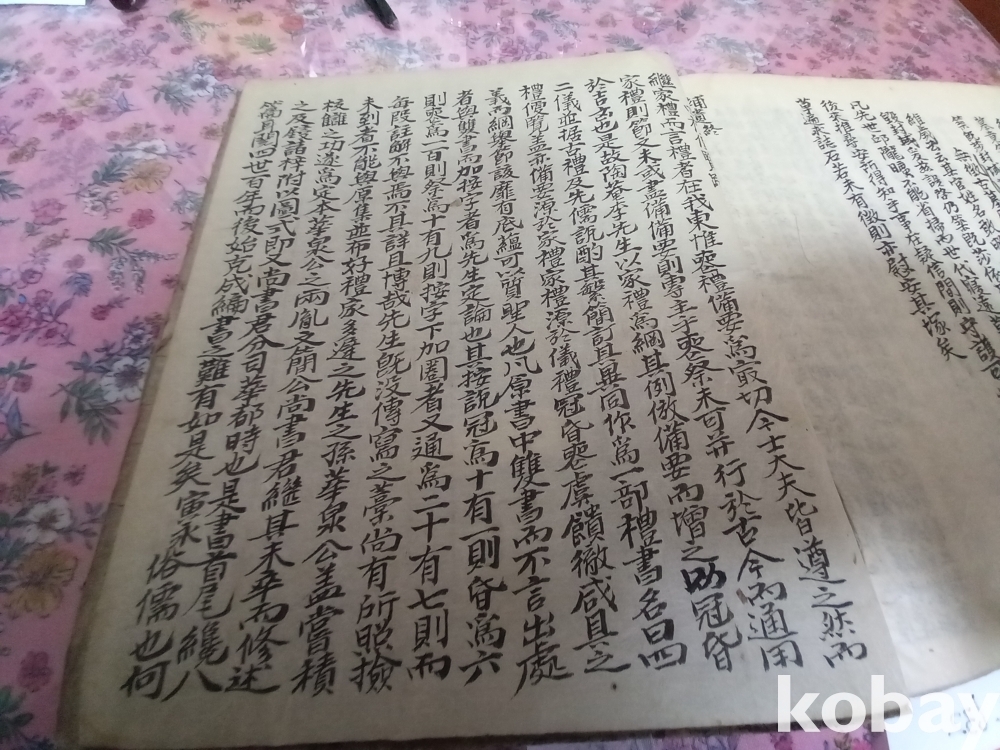 後來推尋安所得知乎事在疑信間則守護可
草遍求誌石若未有徵則亦安其塚矣
繼家禮而言禮者在我東惟喪禮備要爲最切今士大夫皆遵之然而
家禮則節文未或盡備備要則專主乎喪祭未可并行於古今而通用
於吉凶也是故陶菴李先生以家禮爲綱其例倣備要而增之以冠昏
二儀並据古禮及先儒說酌其繁簡訂其異同作爲一部禮書名曰四
禮便覽盖亦備要源於家禮家禮源於儀禮冠昏喪虞饋徹咸具之
義而綱擧節該靡有底蘊可以質聖人也凡原書中雙書而不言出處
者與雙書而加按字者爲先生定論也其按說冠爲十有一則昏爲六
則喪爲一百則祭爲十有九則按字下加圈者又通爲二十有七則而
每段註解不與焉不其詳且博哉先生旣没傳寫之藁尚有所照撿
未到者不能與原集並布好禮家多遺之先生之孫華泉公盖嘗積
校讎之功遂爲定本華泉公之兩胤文簡公尚書君繼其未卒而修述
之及鋟諸梓附以圖式即又尚書君分司華都時也是書首尾纔八
篇再閱四世百年而後始克成編書之難有如是矣寅永俗儒也何
kobay